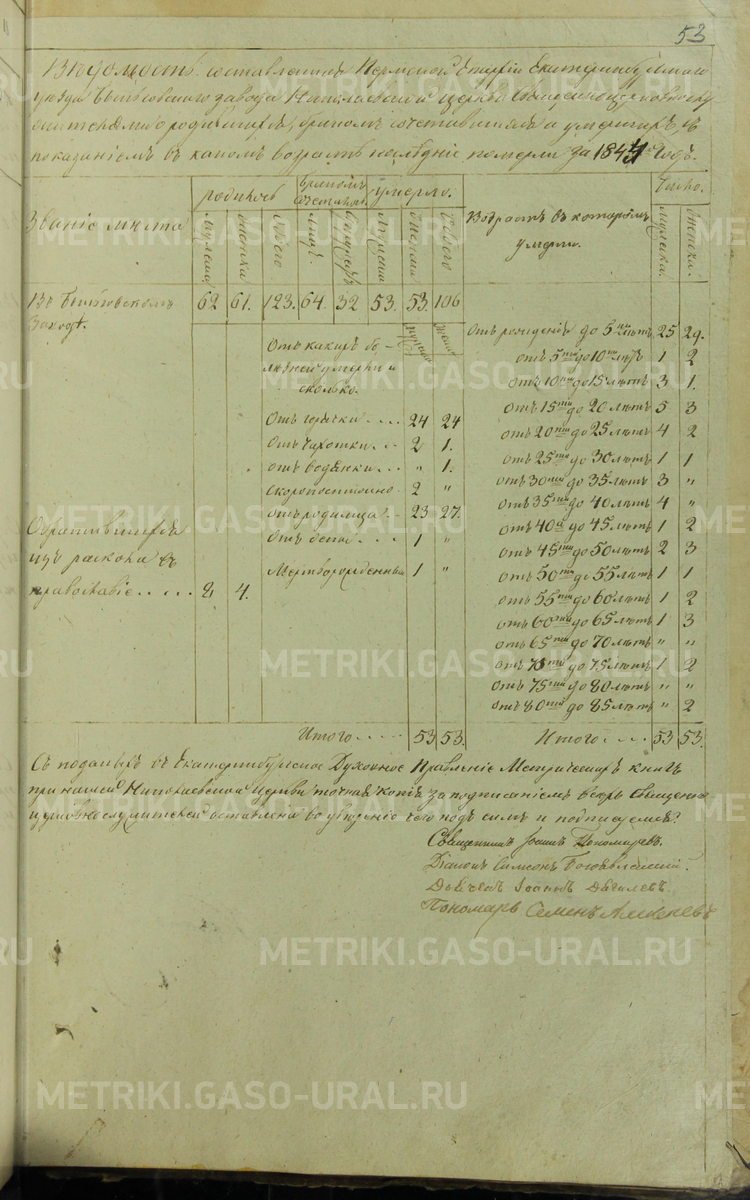 53
Вѣдомость составленная Пермской Епархіи Екатеринбургскаго
уѣзда завода Николаевской церкви
о родившихся, бракомъ сочетавшихся и умершихъ съ
показаніемъ въ какомъ возрастѣ послѣдніе померли за 1844й годъ.
Званіе мѣста
родилось
Бракомъ сочетано
умерло.
Возрастъ въ которомъ умерли.
Число.
Мужеска
Женска
Обоего
Лицъ
Супружествъ
Мужеска
Женска
Обоего
Мужеска.
Женска.
Въ
Заводѣ.
62 61. 123. 64. 32 53. 53. 106
Отъ какихъ бо-
лѣзней умерли и
сколько.
Отъ горячки 24 24
Отъ чахотки 2 1.
отъ водянки " 1.
скоропостижно 2 "
отъ родимца 23 27.
Отъ оспы 1 "
Мертворожденный 1 "
Обратившихся
изъ раскола въ
православіе 8 4.
Отъ рожденія до 5ти лѣтъ 25 29.
отъ 5ти до 10 лѣтъ 1 2
отъ 10ти до 15 лѣтъ 3 1.
отъ 15ти до 20 лѣтъ 5 3
отъ 20ти до 25 лѣтъ 4 2
отъ 25ти до 30 лѣтъ 1 1
отъ 30ти до 35 лѣтъ 3 "
отъ 35ти до 40 лѣтъ 4 "
отъ 40а до 45 лѣтъ 1 2
отъ 45ти до 50 лѣтъ 2 3
отъ 50ти до 55 лѣтъ 1 1
отъ 55ти до 60 лѣтъ 1 2
отъ 60ти до 65 лѣтъ 1 3
отъ 65ти до 70 лѣтъ " "
отъ 70ти до 75 лѣтъ 1 2
отъ 75ти до 80 лѣтъ " "
отъ 80ти до 85 лѣтъ " 2
Итого 53 53.
Итого 53 53.
Съ поданыхъ въ Екатеринбургское Духовное Правленіе Метрическихъ книгъ
при нашей Николаевской церкви точная копія за подписаніемъ всѣхъ священно
и церковнослужителей оставлена во увѣреніе чего подъ симъ и подписуемся:
Священникъ Іоаннъ Пономаревъ.
Діаконъ Симеонъ Богоявленскій.
Дьячекъ Іоаннъ Дягилевъ
Пономарь Семенъ Алексеевъ
METRIKI.GASO-URAL.RU